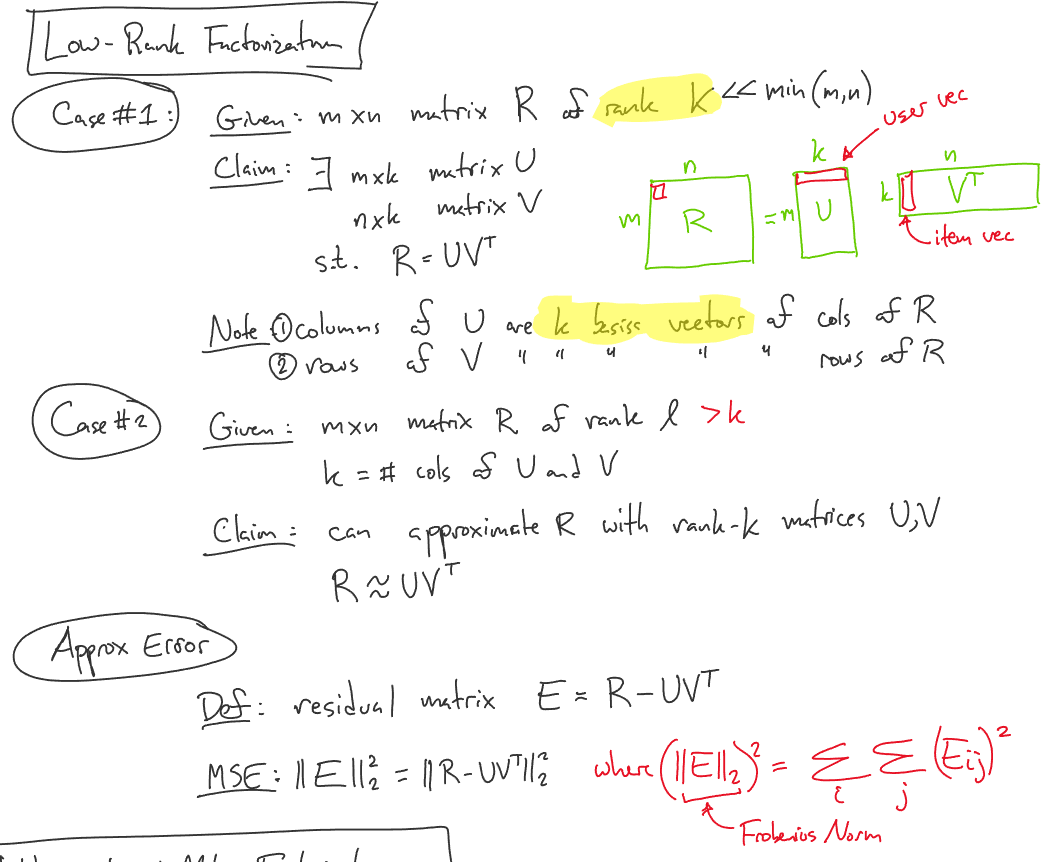 Low-Rank Factorization
Case #1:
Given: m×n matrix R of rank k << min(m,n)
user vec
Claim: ∃ m×k matrix U
n×k matrix V
s.t. R = UVᵀ
n
m
R
=
k
m
U
n
k
Vᵀ
item vec
Note ① columns of U are k basis vectors of cols of R
② rows of V " " " " " rows of R
Case #2
Given: m×n matrix R of rank l > k
k = # cols of U and V
Claim: can approximate R with rank-k matrices U,V
R ≈ UVᵀ
Approx Error
Def: residual matrix E = R - UVᵀ
MSE: ||E||₂² = ||R-UVᵀ||₂² where (||E||₂)² = Σᵢ Σⱼ (Eij)²
Frobenius Norm